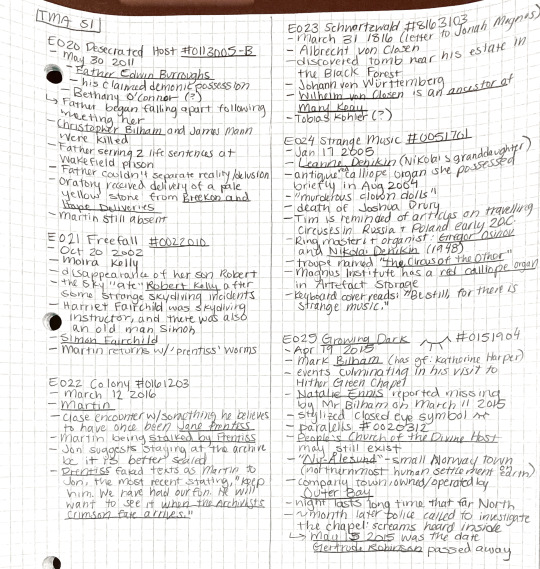 TMA S1
E020 Desecrated Host #0113005-B
- May 30 2011
- Father Edwin Burroughs
- his claimed demonic possession
- Bethany O'Connor (?)
↳ Father began falling apart following
meeting her
- Christopher Bilham and James Mann
were killed
- Father serving 2 life sentences at
Wakefield prison
- Father couldn't separate reality/delusion
- Oratory received delivery of a pale
yellow stone from Breekon and
Hope Deliveries
- Martin still absent
E021 Freefall #0022010
- Oct 20 2002
- Moira Kelly
- disappearance of her son Robert
- the sky "ate" Robert Kelly after
some strange skydiving incidents
- Harriet Fairchild was skydiving
instructor, and there was also
an old man Simon
- Simon Fairchild
- Martin returns w/ Prentiss' worms
E022 Colony #0161203
- March 12 2016
- Martin
- close encounter w/ something he believes
to have once been Jane Prentiss
- Martin being stalked by Prentiss
- Jon suggests staying at the archive
bc it is better sealed
- Prentiss faked texts as Martin to
Jon, the most recent stating, "keep
him. We have had our fun. He will
want to see it when the Archivist's
crimson fate arrives."
E023 Schwartzwald #8163103
- March 31 1816 (letter to Jonah Magnus)
- Albrecht von Closen
- discovered tomb near his estate in
the Black Forest
- Johann von Württemberg
- Wilhelm von Closen is an ancestor of
Mary Keay
- Tobias Kohler (?)
E024 Strange Music #0051701
- Jan 17 2005
- Leanne Denikin (Nikolai's granddaughter)
- antique red calliope organ she possessed
briefly in Aug 2004
- "murderous clown dolls"
- death of Joshua Drury
- Tim is reminded of articles on travelling
circuses in Russia + Poland early 20C.
- Ring master + organist: Gregor Orsinov
and Nikolai Denikin (1948)
- troupe named "the Circus of the Other"
- Magnus Institute has a red calliope organ
in Artefact Storage
- keyboard cover reads: "Be still, for there is
strange music."
E025 Growing Dark #0151904
- Apr 19 2015
- Mark Bilham (has gf: Katherine Harper)
- events culminating in his visit to
Hither Green Chapel
- Natalie Ennis reported missing
by Mr Bilham on March 11 2015
- stylized closed eye symbol
- parallels #0020312
- People's Church of the Divine Host
may still exist
- "Ny-Ålesund" - small Norway town
(northernmost human settlement on earth)
- company town owned/operated by
Outer Bay
- night lasts long time that far North
- ~month later police called to investigate
the chapel; screams heard inside
↳ May 15 2015 was the date
Gertrude Robinson passed away